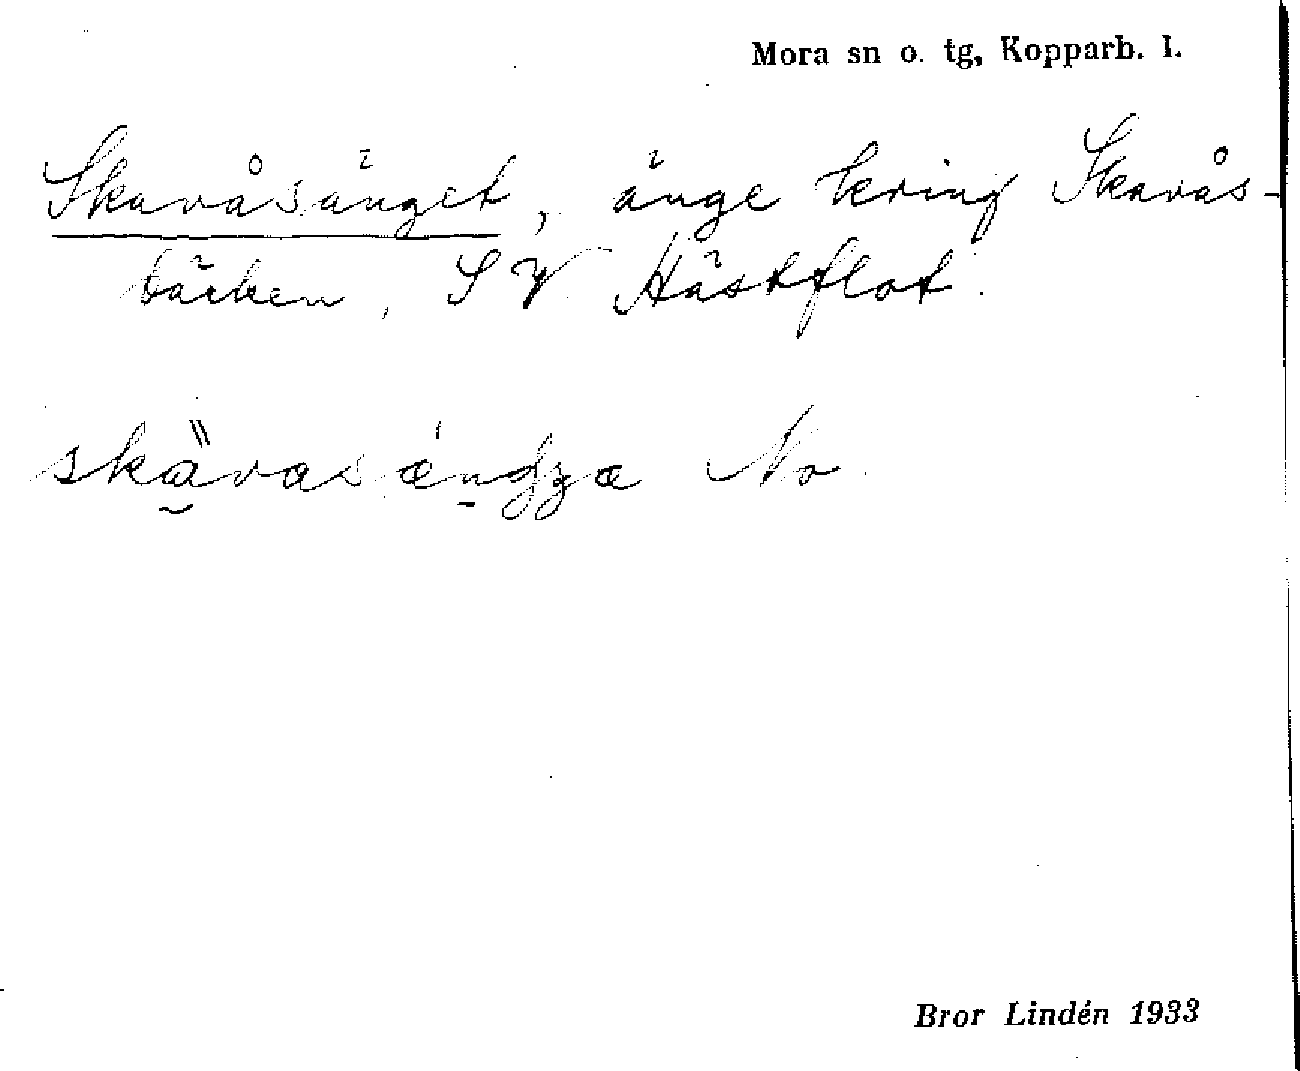 Mora sn o. tg, Kopparb. l.
Skavåsänget, änge kring Skavås-
bäcken, SV Hästflot.
skavasændʒæ No
Bror Lindén 1933